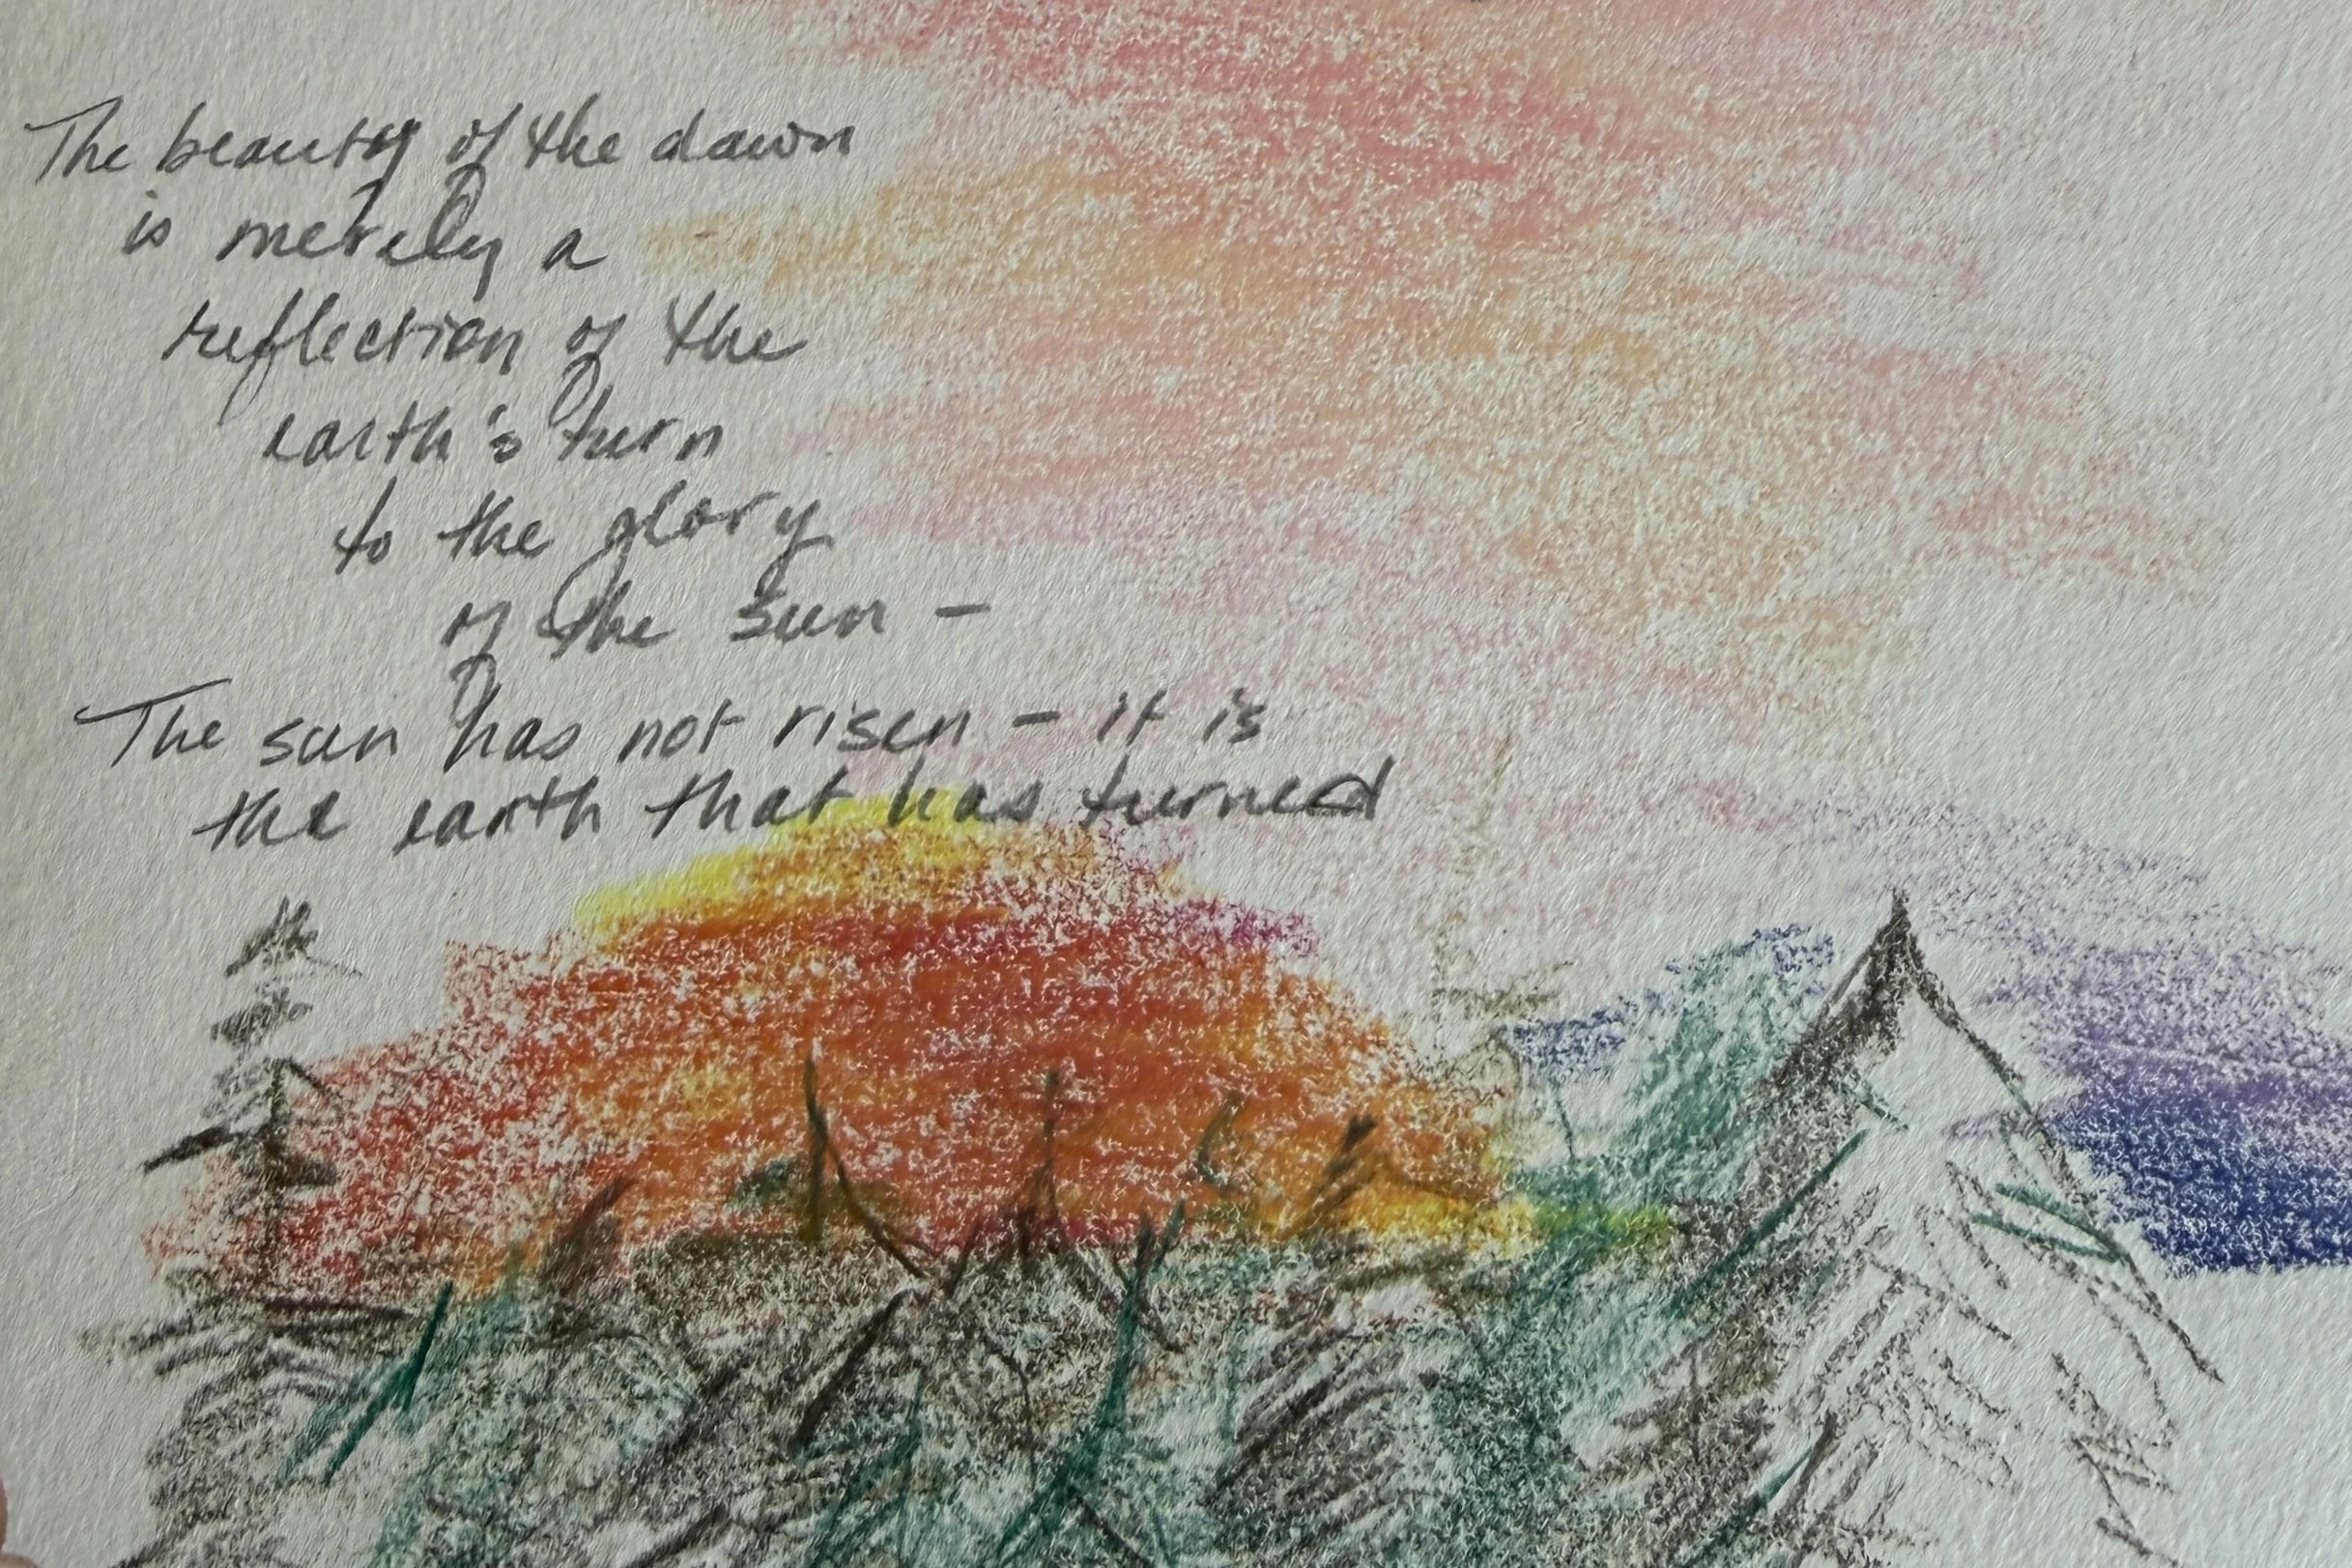 The beauty of the dawn
is merely a
reflection of the
earth's turn
to the glory
of the sun –
The sun has not risen – it is
the earth that has turned